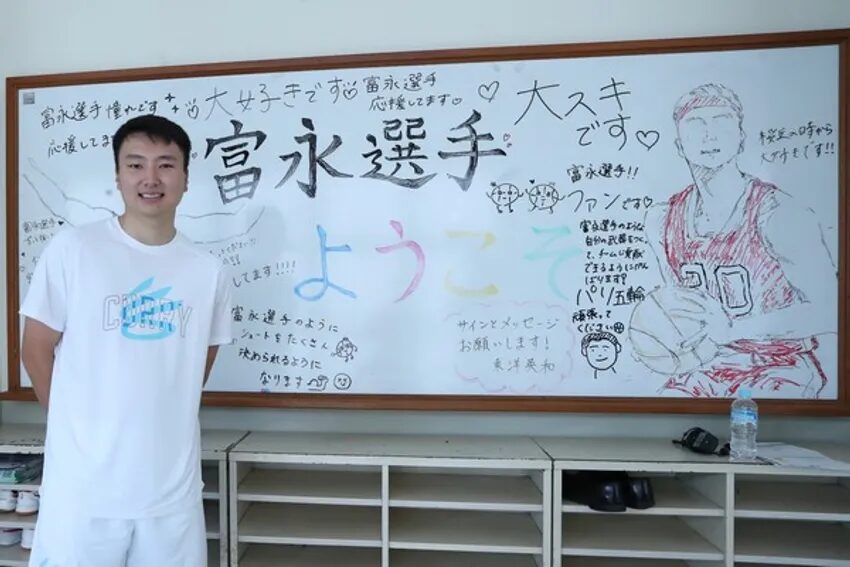 富永選手憧れです
応援してます
大好きです♡
富永選手
応援してます♡
大スキ
です♡
富永選手
ようこそ
富永選手!!
ファンです♡
富永選手のような
自分の武器をつくっ
て、チームに貢献
できるようにがん
ばります?
パリ五輪
頑張って
ください
桜丘の時から
大好きです!!
サインとメッセージ
お願いします!
東洋英和
富永選手のように
シュートをたくさん
決められるように
なります
してます!!!!
富永選手
20
CURRY